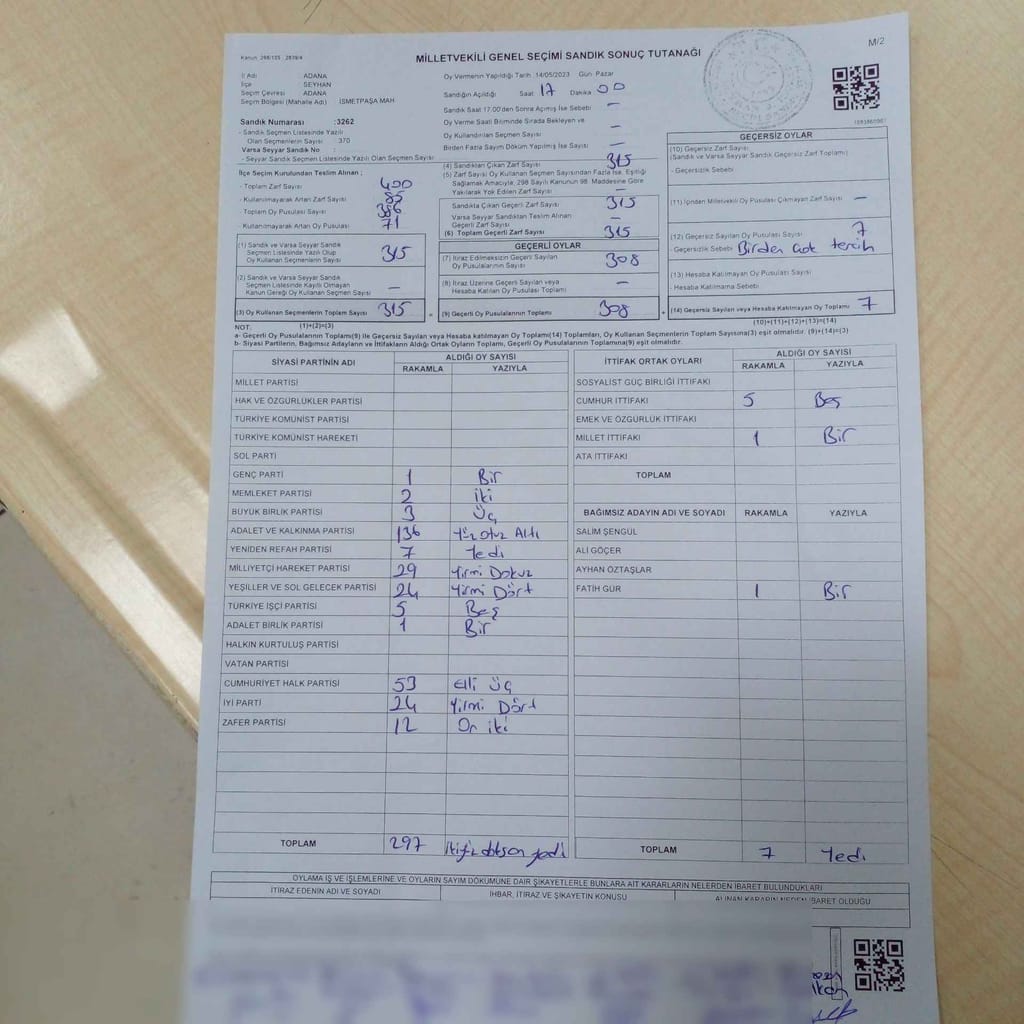 Kanun: 298/105 : 2839/4
MİLLETVEKİLİ GENEL SEÇİMİ SANDIK SONUÇ TUTANAĞI
M/2
İl Adı ADANA
İlçe SEYHAN
Seçim Çevresi ADANA
Seçim Bölgesi (Mahalle Adı) İSMETPAŞA MAH
Sandık Numarası :3262
- Sandık Seçmen Listesinde Yazılı
Olan Seçmenlerin Sayısı : 370
Varsa Seyyar Sandık No :
- Seyyar Sandık Seçmen Listesinde Yazılı Olan Seçmen Sayısı
İlçe Seçim Kurulundan Teslim Alınan ;
- Toplam Zarf Sayısı 400
- Kullanılmayarak Artan Zarf Sayısı 85
- Toplam Oy Pusulası Sayısı 386
- Kullanılmayarak Artan Oy Pusulası 71
(1) Sandık ve Varsa Seyyar Sandık
Seçmen Listesinde Yazılı Olup
Oy Kullanan Seçmenlerin Sayısı 315
(2) Sandık ve Varsa Seyyar Sandık
Seçmen Listesinde Kayıtlı Olmayan
Kanun Gereği Oy Kullanan Seçmen Sayısı —
(3) Oy Kullanan Seçmenlerin Toplam Sayısı 315 =
(1)+(2)=(3)
Oy Vermenin Yapıldığı Tarih :14/05/2023 Gün :Pazar
Sandığın Açıldığı Saat 17 Dakika 00
Sandık Saat 17.00'den Sonra Açılmış İse Sebebi —
Oy Verme Saati Bitiminde Sırada Bekleyen ve
Oy Kullandırılan Seçmen Sayısı —
Birden Fazla Sayım Döküm Yapılmış İse Sayısı —
(4) Sandıktan Çıkan Zarf Sayısı 315
(5) Zarf Sayısı Oy Kullanan Seçmen Sayısından Fazla İse, Eşitliği
Sağlamak Amacıyla, 298 Sayılı Kanunun 98. Maddesine Göre
Yakılarak Yok Edilen Zarf Sayısı —
Sandıkta Çıkan Geçerli Zarf Sayısı 315
Varsa Seyyar Sandıktan Teslim Alınan
Geçerli Zarf Sayısı —
(6) Toplam Geçerli Zarf Sayısı 315
GEÇERLİ OYLAR
(7) İtiraz Edilmeksizin Geçerli Sayılan
Oy Pusulalarının Sayısı 308
(8) İtiraz Üzerine Geçerli Sayılan veya
Hesaba Katılan Oy Pusulası Toplamı —
(9) Geçerli Oy Pusulalarının Toplamı 308 +
GEÇERSİZ OYLAR
(10) Geçersiz Zarf Sayısı
(Sandık ve Varsa Seyyar Sandık Geçersiz Zarf Toplamı)
- Geçersizlik Sebebi
(11) İçinden Milletvekili Oy Pusulası Çıkmayan Zarf Sayısı —
(12) Geçersiz Sayılan Oy Pusulası Sayısı 7
- Geçersizlik Sebebi Birden çok tercih
(13) Hesaba Katılmayan Oy Pusulası Sayısı
- Hesaba Katılmama Sebebi
(14) Geçersiz Sayılan veya Hesaba Katılmayan Oy Toplamı 7
(10)+(11)+(12)+(13)=(14)
NOT:
a- Geçerli Oy Pusulalarının Toplamı(9) ile Geçersiz Sayılan veya Hesaba katılmayan Oy Toplamı(14) Toplamları, Oy Kullanan Seçmenlerin Toplam Sayısına(3) eşit olmalıdır. (9)+(14)=(3)
b- Siyasi Partilerin, Bağımsız Adayların ve İttifakların Aldığı Ortak Oyların Toplamı, Geçerli Oy Pusulalarının Toplamına(9) eşit olmalıdır.
SİYASİ PARTİNİN ADI
ALDIĞI OY SAYISI
RAKAMLA YAZIYLA
MİLLET PARTİSİ
HAK VE ÖZGÜRLÜKLER PARTİSİ
TÜRKİYE KOMÜNİST PARTİSİ
TÜRKİYE KOMÜNİST HAREKETİ
SOL PARTİ
GENÇ PARTİ 1 Bir
MEMLEKET PARTİSİ 2 iki
BÜYÜK BİRLİK PARTİSİ 3 Üç
ADALET VE KALKINMA PARTİSİ 136 Yüz otuz Altı
YENİDEN REFAH PARTİSİ 7 Yedi
MİLLİYETÇİ HAREKET PARTİSİ 29 Yirmi Dokuz
YEŞİLLER VE SOL GELECEK PARTİSİ 24 Yirmi Dört
TÜRKİYE İŞÇİ PARTİSİ 5 Beş
ADALET BİRLİK PARTİSİ 1 Bir
HALKIN KURTULUŞ PARTİSİ
VATAN PARTİSİ
CUMHURİYET HALK PARTİSİ 53 Elli üç
İYİ PARTİ 24 Yirmi Dört
ZAFER PARTİSİ 12 On iki
TOPLAM 297 ikiyüz doksan yedi
İTTİFAK ORTAK OYLARI
ALDIĞI OY SAYISI
RAKAMLA YAZIYLA
SOSYALİST GÜÇ BİRLİĞİ İTTİFAKI
CUMHUR İTTİFAKI 5 Beş
EMEK VE ÖZGÜRLÜK İTTİFAKI
MİLLET İTTİFAKI 1 Bir
ATA İTTİFAKI
TOPLAM
BAĞIMSIZ ADAYIN ADI VE SOYADI RAKAMLA YAZIYLA
SALİM ŞENGÜL
ALİ GÖÇER
AYHAN ÖZTAŞLAR
FATİH GÜR 1 Bir
TOPLAM 7 Yedi
OYLAMA İŞ VE İŞLEMLERİNE VE OYLARIN SAYIM DÖKÜMÜNE DAİR ŞİKAYETLERLE BUNLARA AİT KARARLARIN NELERDEN İBARET BULUNDUKLARI
İTİRAZ EDENİN ADI VE SOYADI İHBAR, İTİRAZ VE ŞİKAYETİN KONUSU ALINAN KARARIN NEDEN İBARET OLDUĞU